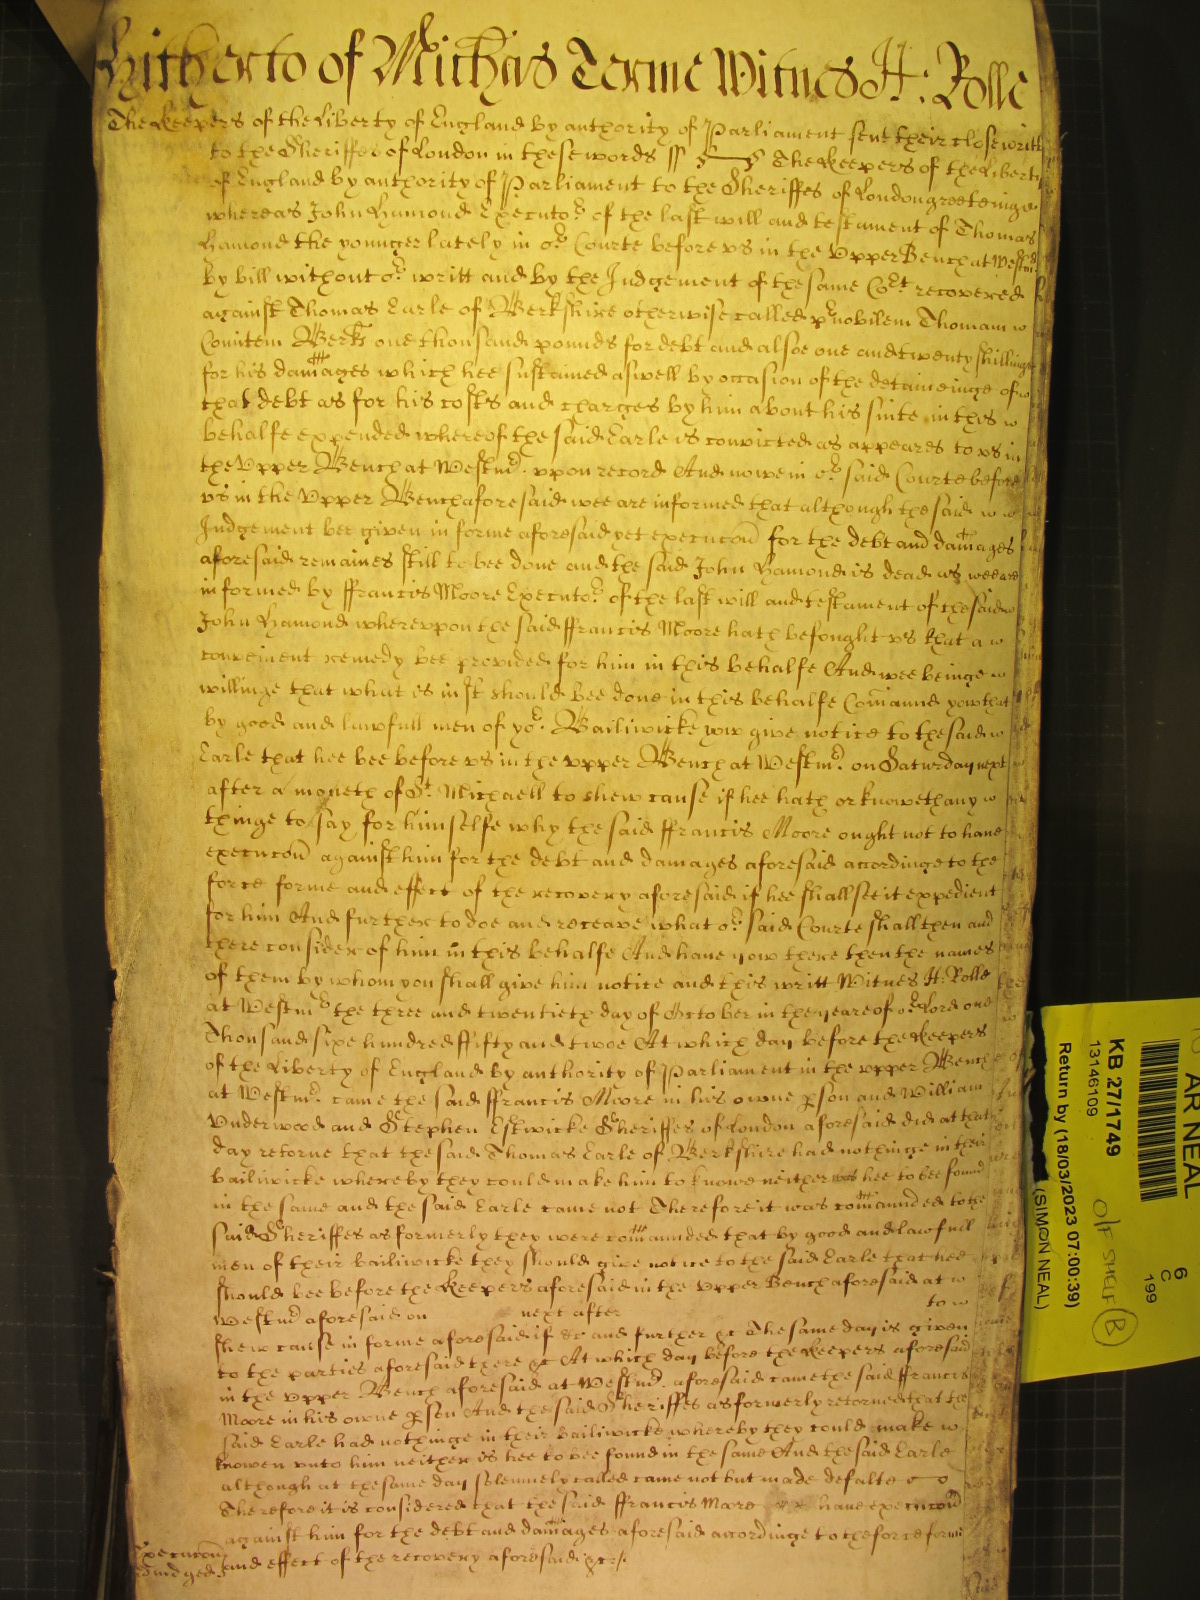 Hitherto of Mich'is Terme Witnes H: Rolle
The Keepers of the Liberty of England by authority of Parliament sent their close writt
to the Sheriffes of London in these words ss The Keepers of the Liberty
of England by authority of Parliament to the Sheriffes of London greetinge
whereas John Hamond Executor of the last will and testament of Thomas
Hamond the younger lately in or Courte before us in the Vpper Bench at Westmr
by bill without or writt and by the Judgement of the same Cort recovered
against Thomas Earle of Berkshire otherwise called pr nobilem Thomam
Comitem Berks one thousand pounds for debt and alsoe one and twenty shillinges
for his damages which hee sustained aswell by occasion of the detaineinge of
that debt as for his costs and charges by him about his suite in this
behalfe expended whereof the said Earle is convicted as appeares to vs in
the Vpper Bench at Westmr. vpon record And now in or said Courte before
vs in the Vpper Bench aforesaid wee are informed that although the said
Judgement bee given in forme aforesaid yet execucon for the debt and damages
aforesaid remaines still to bee done and the said John Hamond is dead as wee are
informed by ffrancis Moore Executor of the last will and testament of the said
John Hamond wherevpon the said ffrancis Moore hath besought vs that a
convenient remedy bee provided for him in this behalfe And wee beinge
willinge that what is iust should bee done in this behalfe Comaund yow that
by good and lawfull men of yor. Bailiwicke yow give notice to the said
Earle that hee bee before vs in the vpper Bench at Westmr. on Saturday next
after a moneth of St. Michaell to shew cause if hee hath or knoweth any
thinge to say for himselfe why the said ffrancis Moore ought not to have
execucon against him for the debt and damages aforesaid accordinge to the
force forme and effect of the recovery aforesaid if hee shall see it expedient
for him And further to doe and receave what or said Courte shall then and
there consider of him in this behalfe And have yow there then the names
of them by whom you shall give him notice and this writt Witnes H: Rolle
at Westmr the three and twentieth day of October in the yeare of or Lord one
Thousand sixe hundred ffifty and twoe At which day before the Keepers
of the Liberty of England by authority of Parliament in the vpper Bench
at Westmr. came the said ffrancis Moore in his owne pson and William
Vnderwood and Stephen Estwicke Sheriffes of London aforesaid did at that
day retorne that the said Thomas Earle of Berkshire had nothinge in their
bailiwicke whereby they could make him to knowe neither was hee to bee found
in the same and the said Earle came not Therefore it was comaunded to the
said Sheriffes as formerly they were comaunded that by good and lawfull
men of their bailiwicke they should give notice to the said Earle that hee
should bee before the Keepers aforesaid in the Vpper Bench aforesaid at
Westmr aforesaid on next after to
shew cause in forme aforesaid if &c and further &c The same day is given
to the parties aforesaid there &c At which day before the Keepers aforesaid
in the vpper Bench aforesaid at Westmr. aforesaid came the said ffrancis
Moore in his owne pson And the said Sheriffes as formerly retorned that the
said Earle had nothinge in their bailiwicke whereby they could make
knowen vnto him neither is hee to bee found in the same And the said Earle
although at the same day solemnely called came not but made defalte
Therefore it is considered that the said ffrancis Moore have execucon
against him for the debt and damages aforesaid accordinge to the force forme
Execucon
adiudged and effect of the recovery aforesaid &c
AR NEAL
6
C
199
KB 27/1749
13146109
Return by (18/03/2023 07:00:39)
(SIMON NEAL)
O/F SHELF B